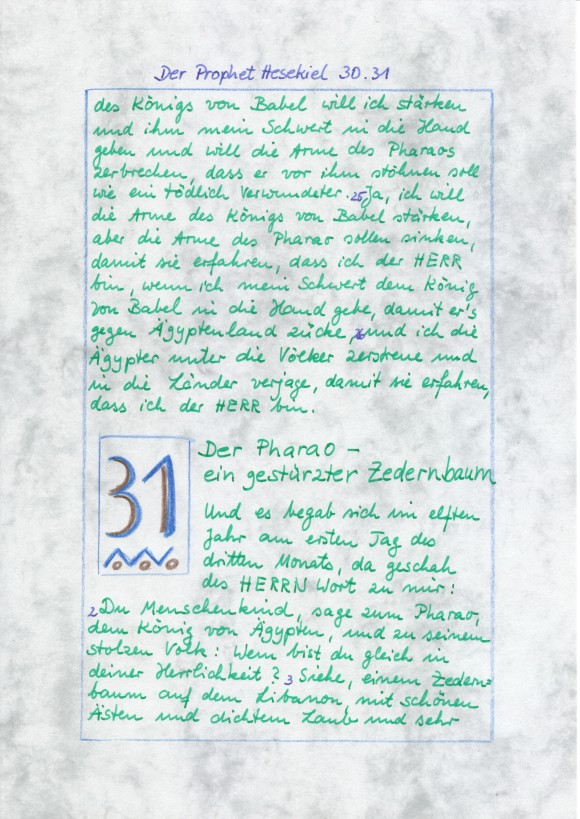 Der Prophet Hesekiel 30.31
des Königs von Babel will ich stärken
und ihm mein Schwert in die Hand
geben und will die Arme des Pharaos
zerbrechen, dass er vor ihm stöhnen soll
wie ein tödlich Verwundeter. 25 Ja, ich will
die Arme des Königs von Babel stärken,
aber die Arme des Pharao sollen sinken,
damit sie erfahren, dass ich der HERR
bin, wenn ich mein Schwert dem König
von Babel in die Hand gebe, damit er's
gegen Ägyptenland zücke, 26 und ich die
Ägypter unter die Völker zerstreue und
in die Länder verjage, damit sie erfahren,
dass ich der HERR bin.
31
Der Pharao –
ein gestürzter Zedernbaum
Und es begab sich im elften
Jahr am ersten Tag des
dritten Monats, da geschah
des HERRN Wort zu mir:
2 Du Menschenkind, sage zum Pharao,
dem König von Ägypten, und zu seinem
stolzen Volk: Wem bist du gleich in
deiner Herrlichkeit? 3 Siehe, einem Zedern=
baum auf dem Libanon, mit schönen
Ästen und dichtem Laub und sehr